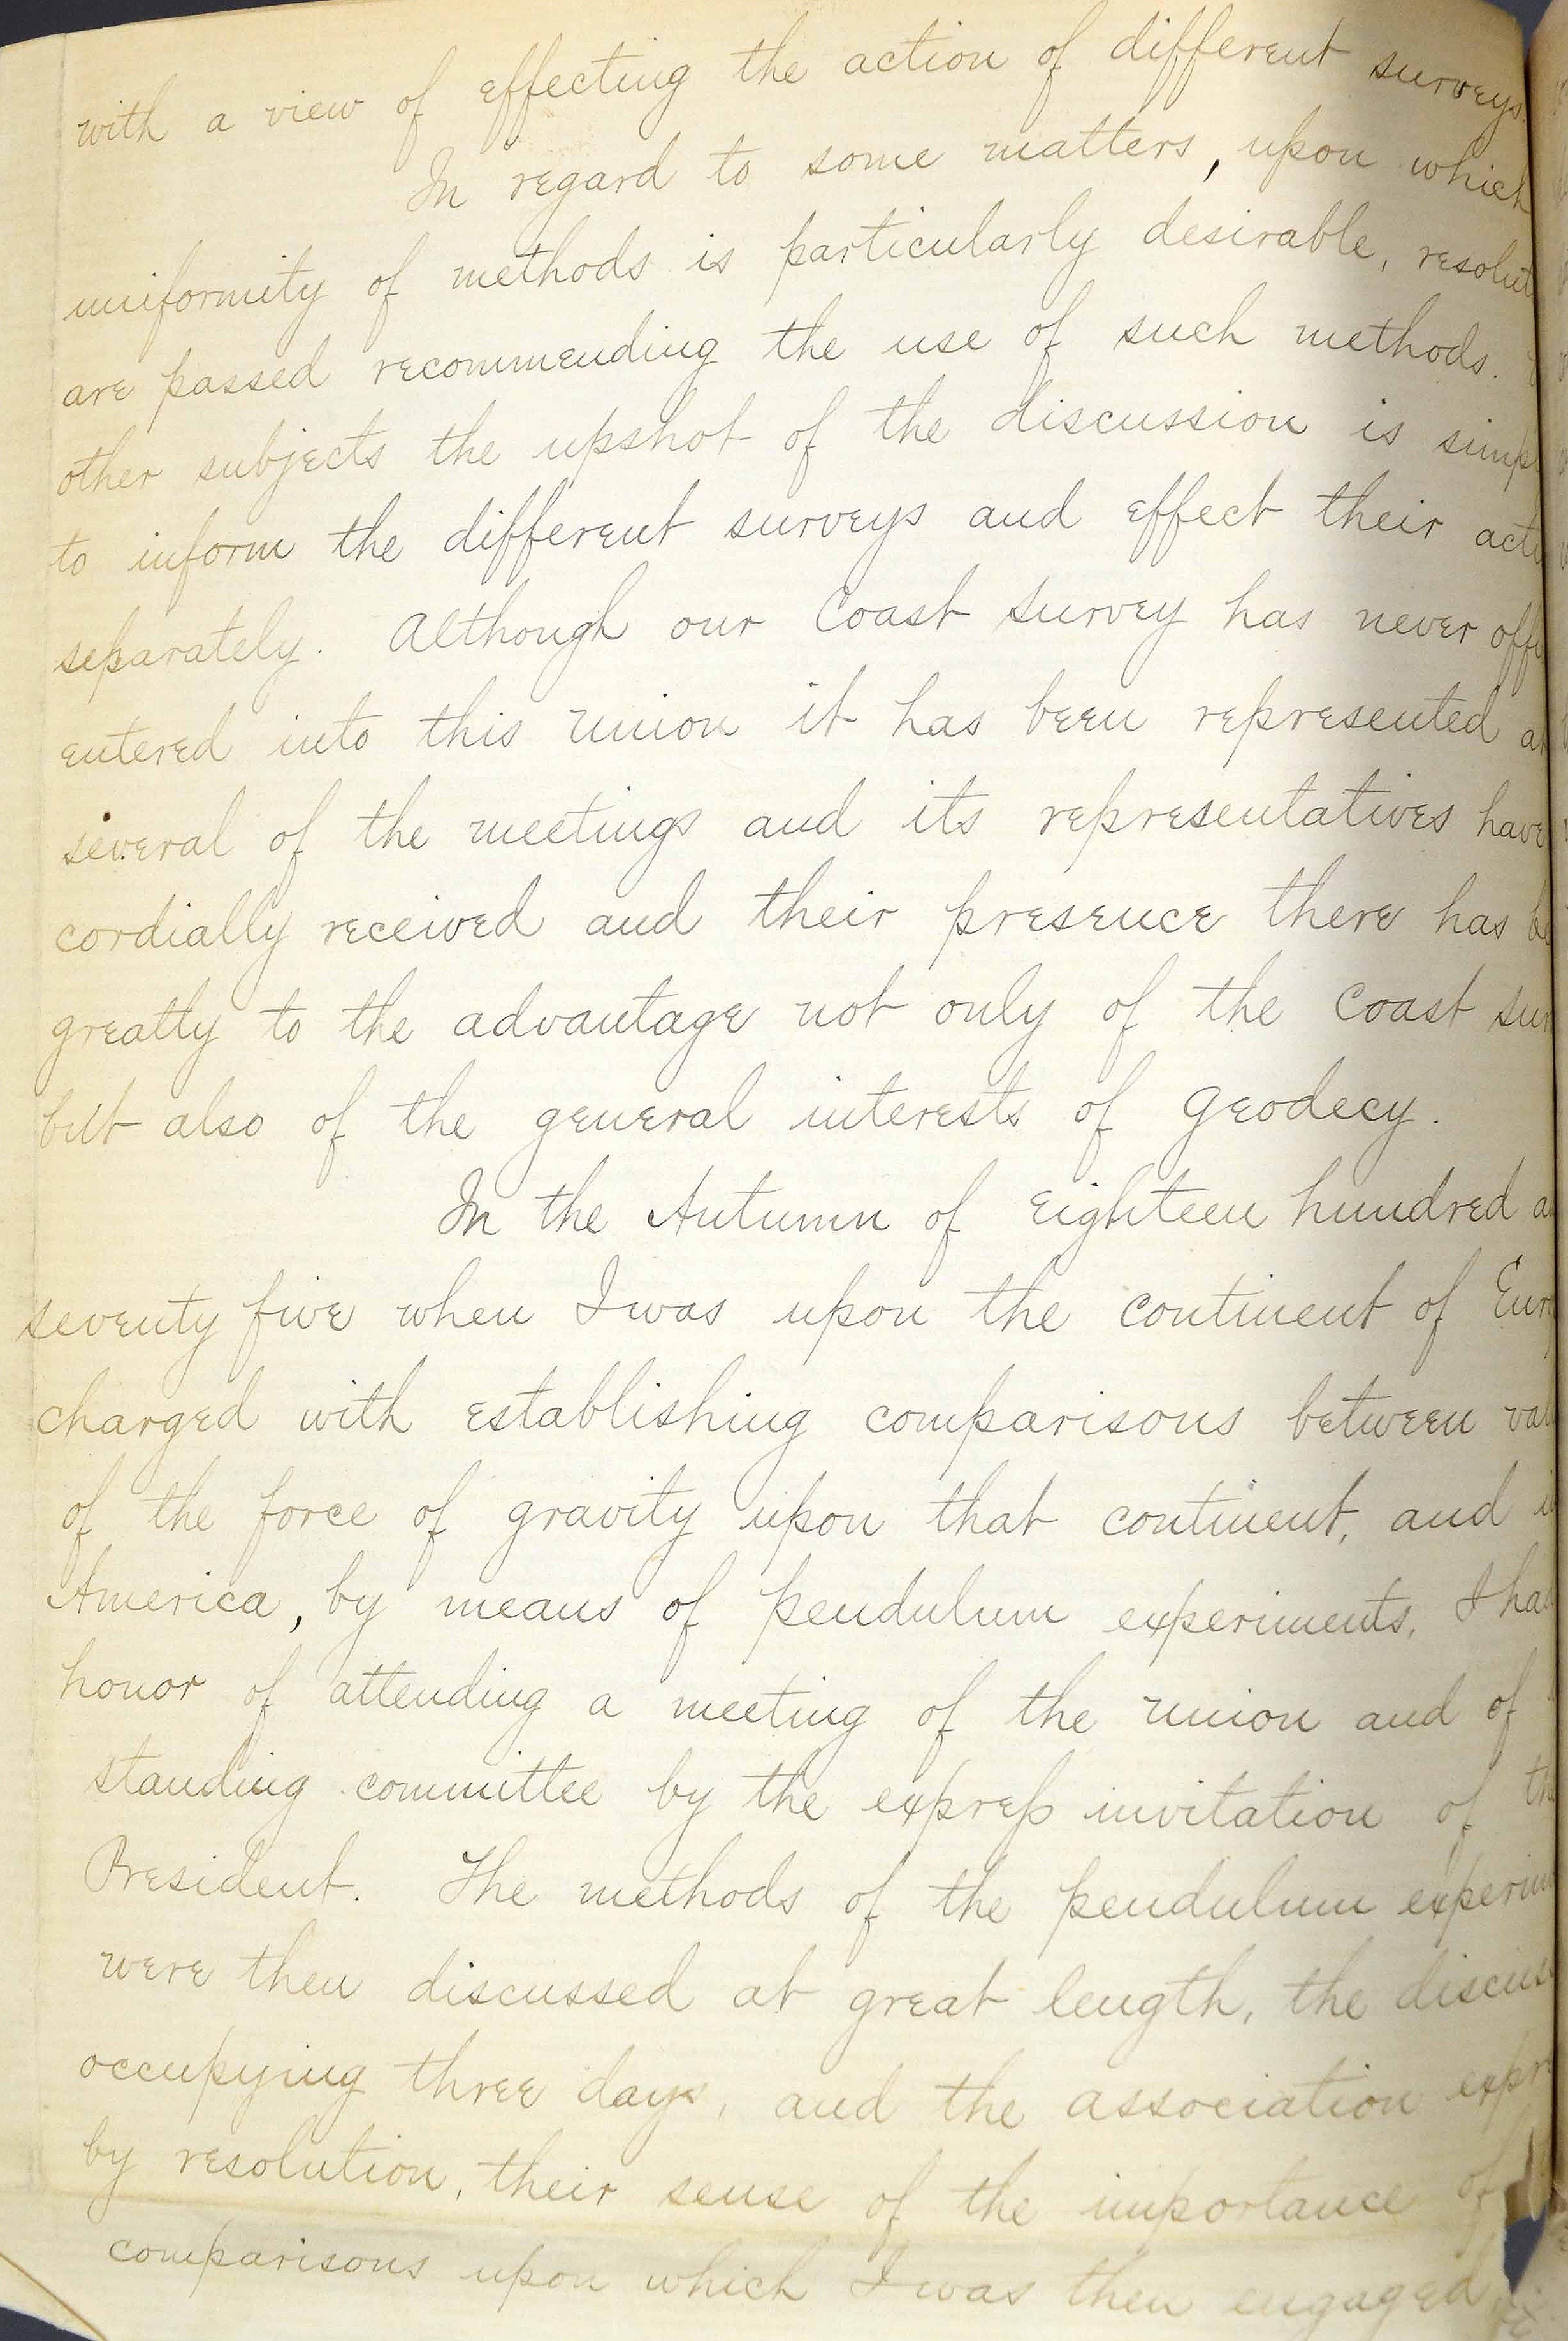 with a view of effecting the action of different surveys.
In regard to some matters, upon which
uniformity of methods is particularly desirable, resolut
are passed recommending the use of such methods.
other subjects the upshot of the discussion is simp
to inform the different surveys and effect their acti
separately. Although our Coast Survey has never offi
entered into this union it has been represented at
several of the meetings and its representatives have
cordially received and their presence there has be
greatly to the advantage not only of the Coast sur
but also of the general interests of Geodecy.
In the Autumn of Eighteen hundred a
seventy five when I was upon the continent of Euro
charged with establishing comparisons between val
of the force of gravity upon that continent, and i
America, by means of pendulum experiments, I had
honor of attending a meeting of the union and of
standing committee by the express invitation of the
President. The methods of the pendulum experim
were then discussed at great length, the discuss
occupying three days, and the association expre
by resolution, their sense of the importance of
comparisons upon which I was then engaged